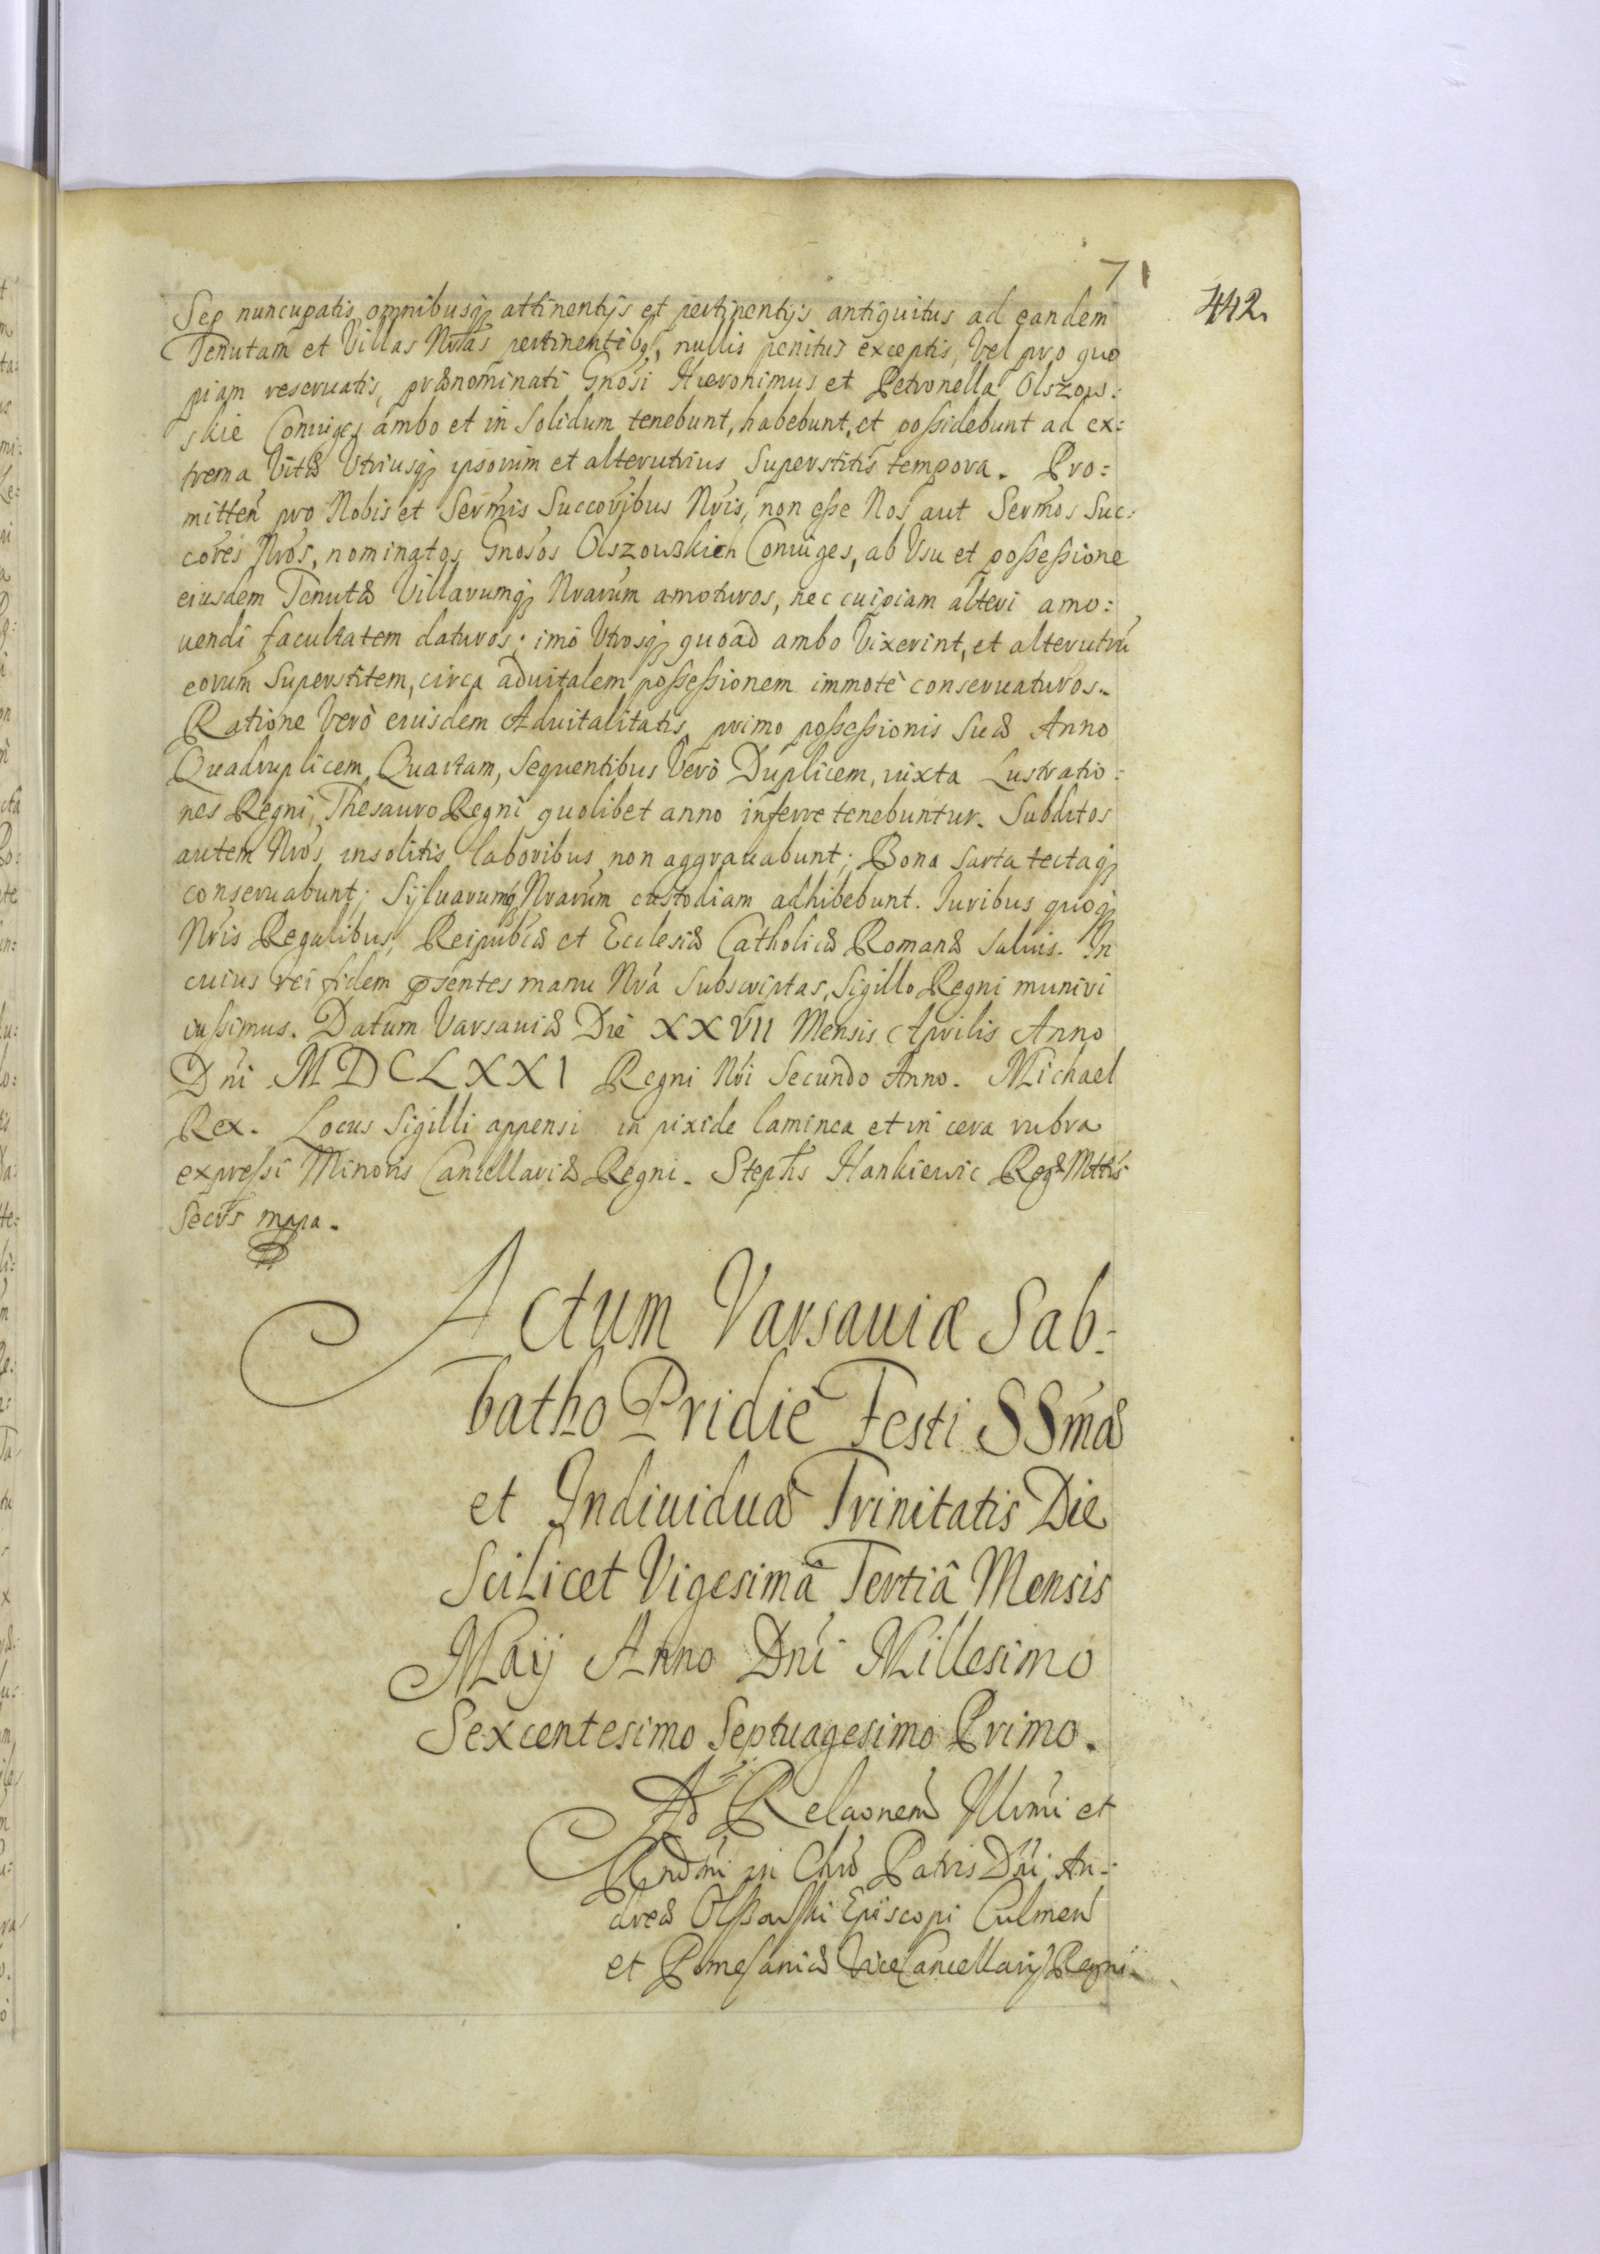 71
442.
Sep nuncupatis omnibusq; attinentijs et pertinentijs antiquitus ad eandem
Tenutam et Villas Nras pertinentibq, nullis penitus exceptis, Vel pro quo
piam reseruatis, prænominati Gnosi Hieronimus et Petronella Olszow:
skie Coniuges ambo et in Solidum tenebunt, habebunt, et possidebunt ad ex:
trema Vitæ Vtriusq; ipsorum et alterutrius Superstitis tempora. Pro:
mitten pro Nobis et Sermis Succoribus Nris, non esse Nos aut Sermos Suc:
cores Nros, nominatos Gnosos Olszowskich Coniuges, ab Vsu et possessione
eiusdem Tenutæ Villarumq; Nrarum amoturos, nec cuipiam alteri amo:
uendi facultatem daturos; imò Vtrosq; quoad ambo Vixerint, et alterutrũ
eorum Superstitem, circa aduitalem possessionem immotè conseruaturos.
Ratione Verò eiusdem Aduitalitatis primo possessionis Suæ Anno
Quadruplicem Quartam, Sequentibus Verò Duplicem, iuxta Lustratio:
nes Regni, Thesauro Regni quolibet anno inferre tenebuntur. Subditos
autem Nros insolitis laboribus non aggrauabunt; Bona Sarta tectaq;
conseruabunt; Syluarumq; Nrarum custodiam adhibebunt. Iuribus quoq;
Nris Regalibus, Reipubcæ et Ecclesiæ Catholicæ Romanæ Saluis. In
cuius rei fidem psentes manu Nrá Subscriptas, Sigillo Regni muniri
iussimus. Datum Varsauiæ Die XXVII Mensis Aprilis Anno
Dni MDCLXXI Regni Nri Secundo Anno. Michael
Rex. Locus Sigilli appensi in pixide laminea et in cera rubra
expressi Minoris Cancellariæ Regni. Stephs Hankiewic Regæ Mttis
Secrs mppa.
Actum Varsauiæ Sab:
batho Pridiè Festi SSmæ
et Indiuiduæ Trinitatis Die
Scilicet Vigesimâ Tertiâ Mensis
Maij Anno Dni Millesimo
Sexcentesimo Septuagesimo Primo.
Ad Relaonem Illrmi et
Rndmi in Chro Patris Dni An:
dreæ Olszowski Episcopi Culmen
et Pomesaniæ Vice Cancellarij Regni.